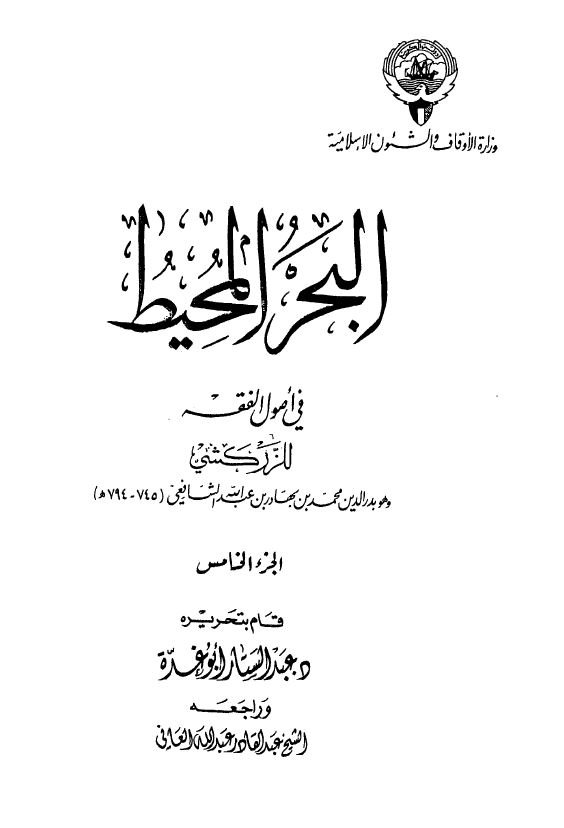 وزارة الأوقاف والشئون الإسلامية
البَحْرُ المُحِيطُ
في أصول الفقه
للزَّرْكَشِيّ
وهو بدر الدين محمد بن بهادر بن عبد الله الشافعي (٧٤٥-٧٩٤ه)
الجزء الخامس
قام بتحريره
د. عبد الستار أبو غدّة
وراجعه
الشيخ عبد القادر عبد الله العاني